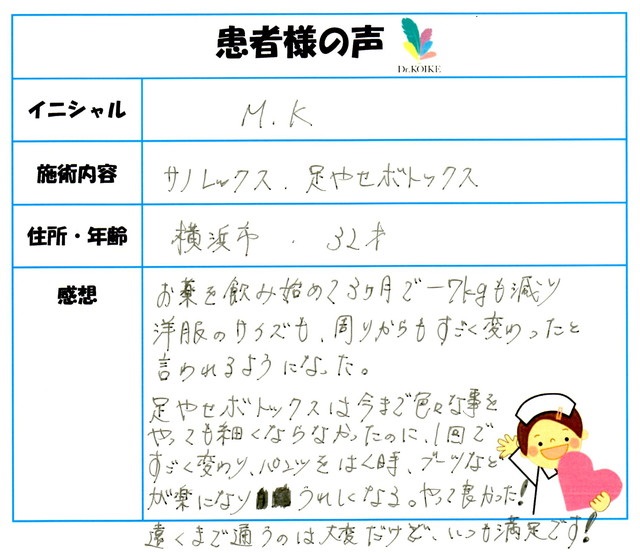 患者様の声
Dr.KOIKE
イニシャル
M.K
施術内容
サノレックス．足やせボトックス
住所・年齢
横浜市 ・ 32才
感想
お薬を飲み始めて3ヶ月で－7kgも減り
洋服のサイズも、周りからもすごく変わったと
言われるようになった。
足やせボトックスは今まで色々な事を
やっても細くならなかったのに、1回で
すごく変わり、パンツをはく時、ブーツなど
が楽になり うれしくなる。やって良かった!
遠くまで通うのは大変だけど、いつも満足です!